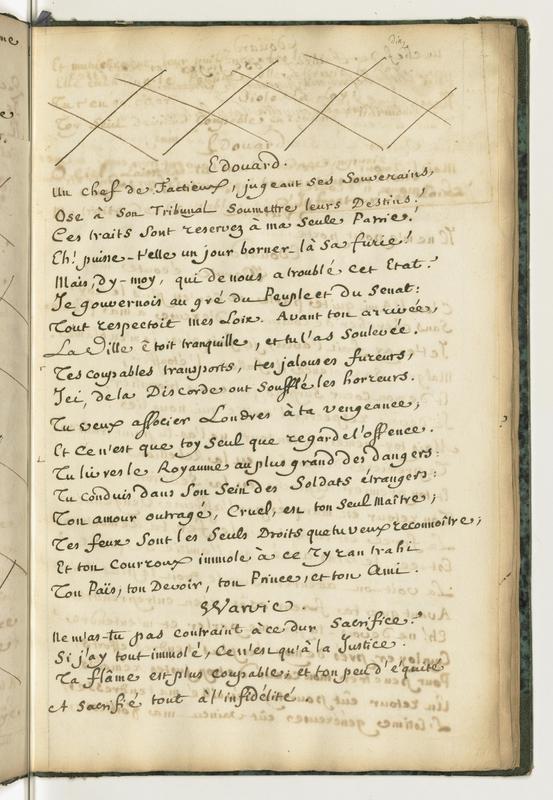 Edouard.
Un chef de Factieux, jugeant ses Souverains,
Ose à son Tribunal Soumettre leurs Destins!
Ces traits sont reservez à ma seule Patrie.
Eh! puisse-t'elle un jour borner là sa furie!
Mais, dy-moy, qui de nous a troublé cet Etat?
Je gouvernois au gré du Peuple et du Senat:
Tout respectoit mes Loix. Avant ton arrivée,
La Ville étoit tranquille, et tu l'as soulevée.
Tes coupables transports, tes jalouses fureurs,
Ici, de la Discorde ont soufflé les horreurs.
Tu veux associer Londres à ta vengeance;
Et Ce n'est que toy seul que regarde l'offence.
Tu livres le Royaume au plus grand des dangers:
Tu conduis dans son sein des Soldats étrangers:
Ton amour outragé, Cruel, est ton seul Maître;
Tes feux sont les seuls Droits que tu veux reconnoître;
Et ton Courroux immole à ce Tyran trahi
Ton Païs, ton Devoir, ton Prince, et ton Ami.
Warvic.
Ne m'as-tu pas contraint à ce dur sacrifice?
Si j'ay tout immolé, ce n'est qu'à la Justice.
Ta flâme est plus coupable; et ton peu d'équité
A sacrifié tout à l'infidélité